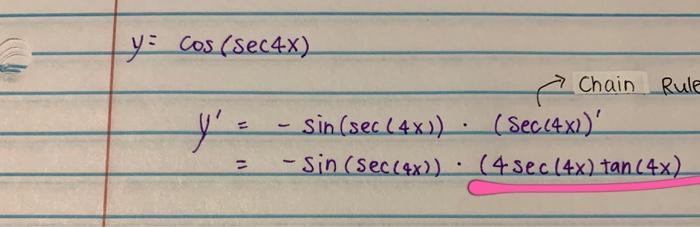 y = cos(sec4x)
Chain Rule
y' = - sin(sec(4x)) · (sec(4x))'
= - sin(sec(4x)) · (4 sec(4x) tan(4x)